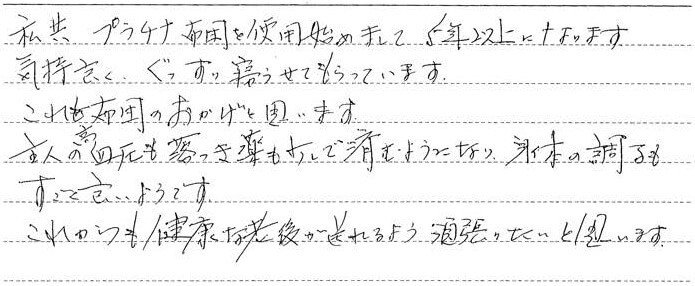 私共 プラチナ布団を使用始めまして 5年以上になります
気持良く、ぐっすり寝らせてもらっています。
これも布団のおかげと思います
主人の高血圧も落つき薬も少しで済むようになり 身体の調子も
すごく良いようです。
これからも健康な老後が送れるよう 頑張りたいと思います。